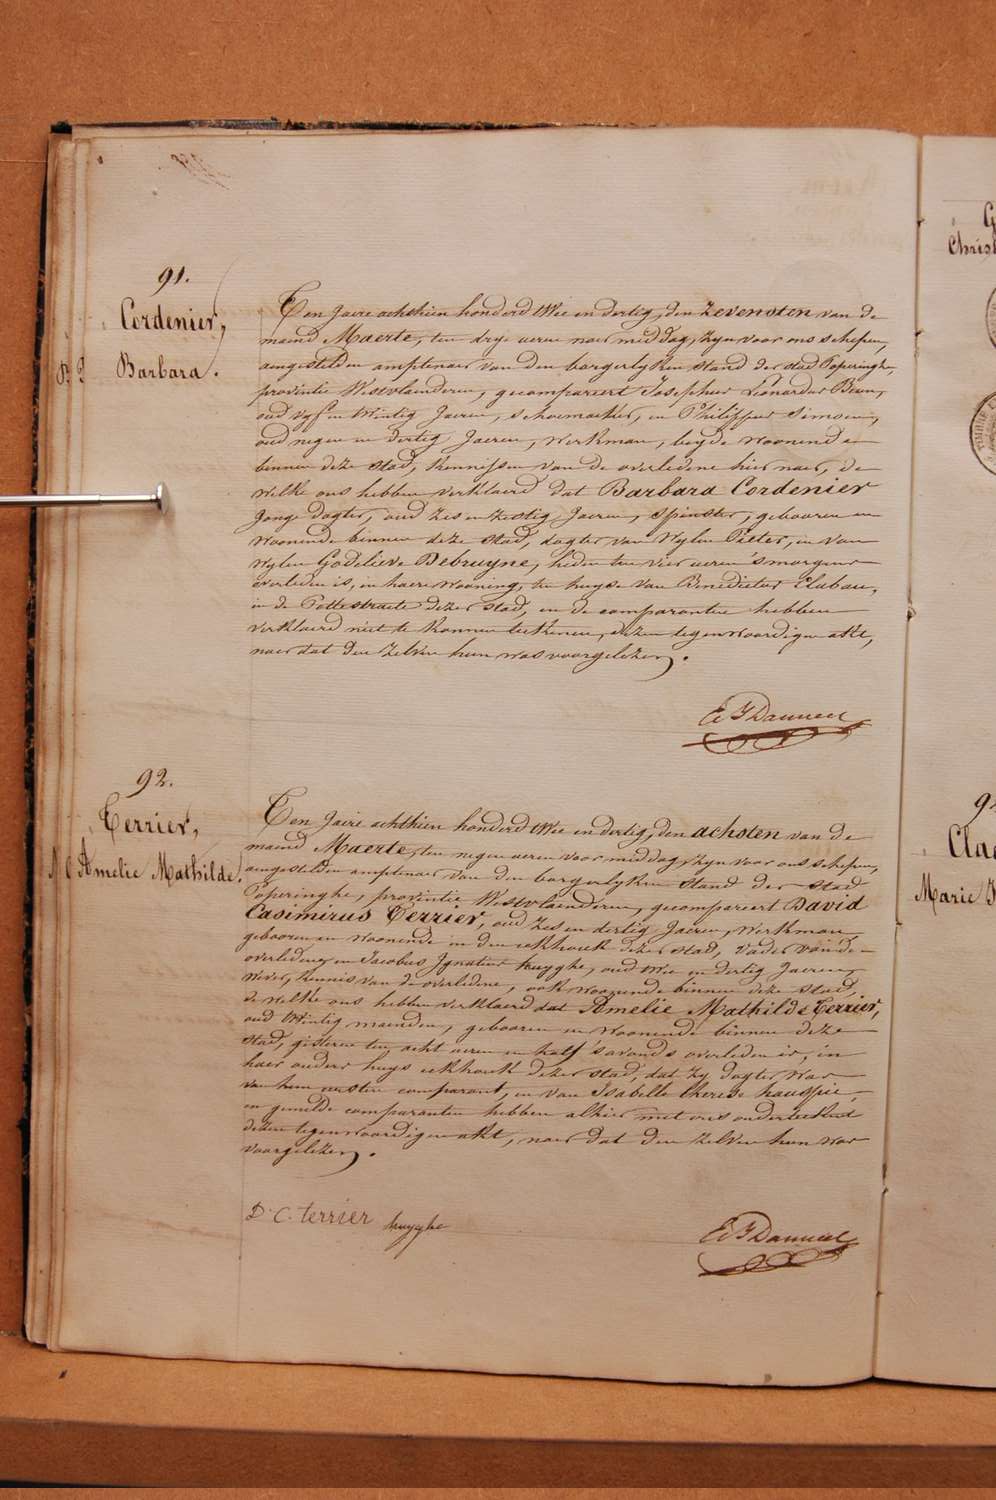 91.
Cordenier,
Barbara.
Ten jaere achthien honderd twee en dertig, den zevensten van de
maend Maerte, ten drye ueren naer middag, zyn voor ons schepen,
aengestelden amptenaer van den borgerlyken stand der stad Poperinghe,
provintie Westvlaenderen, gecompareert Josephus Leonardus Beun,
oud vyf en twintig Jaeren, schoemaeker, en Philippus Simoen,
oud negen en dertig Jaeren, werkman, beyde woonende
binnen deze stad, kennissen van de overledene hier naer, de
welke ons hebben verklaerd dat Barbara Cordenier
Jonge dogter, oud zes en zestig Jaeren, spinster, gebooren en
woonende binnen deze stad, dogter van wylen Pieter, en van
wylen Godelieve Debruyne, heden ten vier ueren 's morgens
overleden is, in haere wooning, ten huyse van Benedictus Clabau,
in de Pottestraete dezer stad, en de comparanten hebben
verklaerd niet te konnen teekenen, dezen tegenwoordigen akt,
naer dat den zelven hun was voorgelezen.
92.
Terrier,
Amelie Mathilde.
Ten jaere achthien honderd twee en dertig, den achsten van de
maend Maerte, ten negen ueren voor middag, zyn voor ons schepen,
aengestelden amptenaer van den borgerlyken stand der stad
Poperinghe, provintie Westvlaenderen, gecompareert David
Casimirus Terrier, oud zes en dertig Jaeren, werkman,
gebooren en woonende in den eekhoek dezer stad, vader van de
overledene, en Jacobus Ignatius huyghe, oud twee en dertig Jaeren,
wever, kennis van de overledene, ook woonende binnen deze stad,
de welke ons hebben verklaerd dat Amelie Mathilde Terrier,
oud twintig maenden, gebooren en woonende binnen deze
stad, gisteren ten acht ueren en half 's avonds overleden is, in
haer ouders huys eekhoek dezer stad, dat zy dogter was
van den eersten comparant, en van Isabelle therese hauspie,
en gemelde comparanten hebben alhier met ons onderteekend
dezen tegenwoordigen akt, naer dat den zelven hun was
voorgelezen.
D. C. terrier huyghe